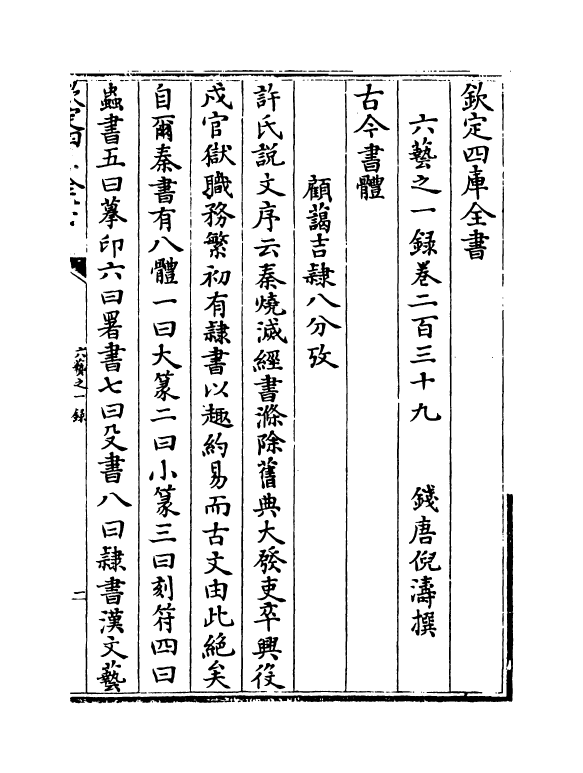 欽定四庫全書
六藝之一録卷二百三十九
錢唐倪濤撰
古今書體
顧藹吉隸八分攷
許氏説文序云秦燒滅經書滌除舊典大發吏卒興役
戍官獄職務繁初有隸書以趣約易而古文由此絶矣
自爾秦書有八體一曰大篆二曰小篆三曰刻符四曰
蟲書五曰摹印六曰署書七曰殳書八曰隸書漢文藝
六藝之一録